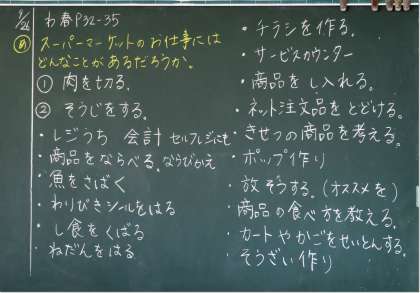 9/26 わ春P32-35
め スーパーマーケットのお仕事には
どんなことがあるだろうか。
① 肉を切る。
② そうじをする。
・レジうち 会計 セルフレジにも
・商品をならべる。ならびかえ
・魚をさばく
・わりびきシールをはる
・し食をくばる
・ねだんをはる
・チラシを作る。
・サービスカウンター
・商品をし入れる。
・ネット注文品をとどける。
・きせつの商品を考える。
・ポップ作り
・放そうする。(オススメを)
・商品の食べ方を教える。
・カートやかごをせいとんする。
・そうざい作り